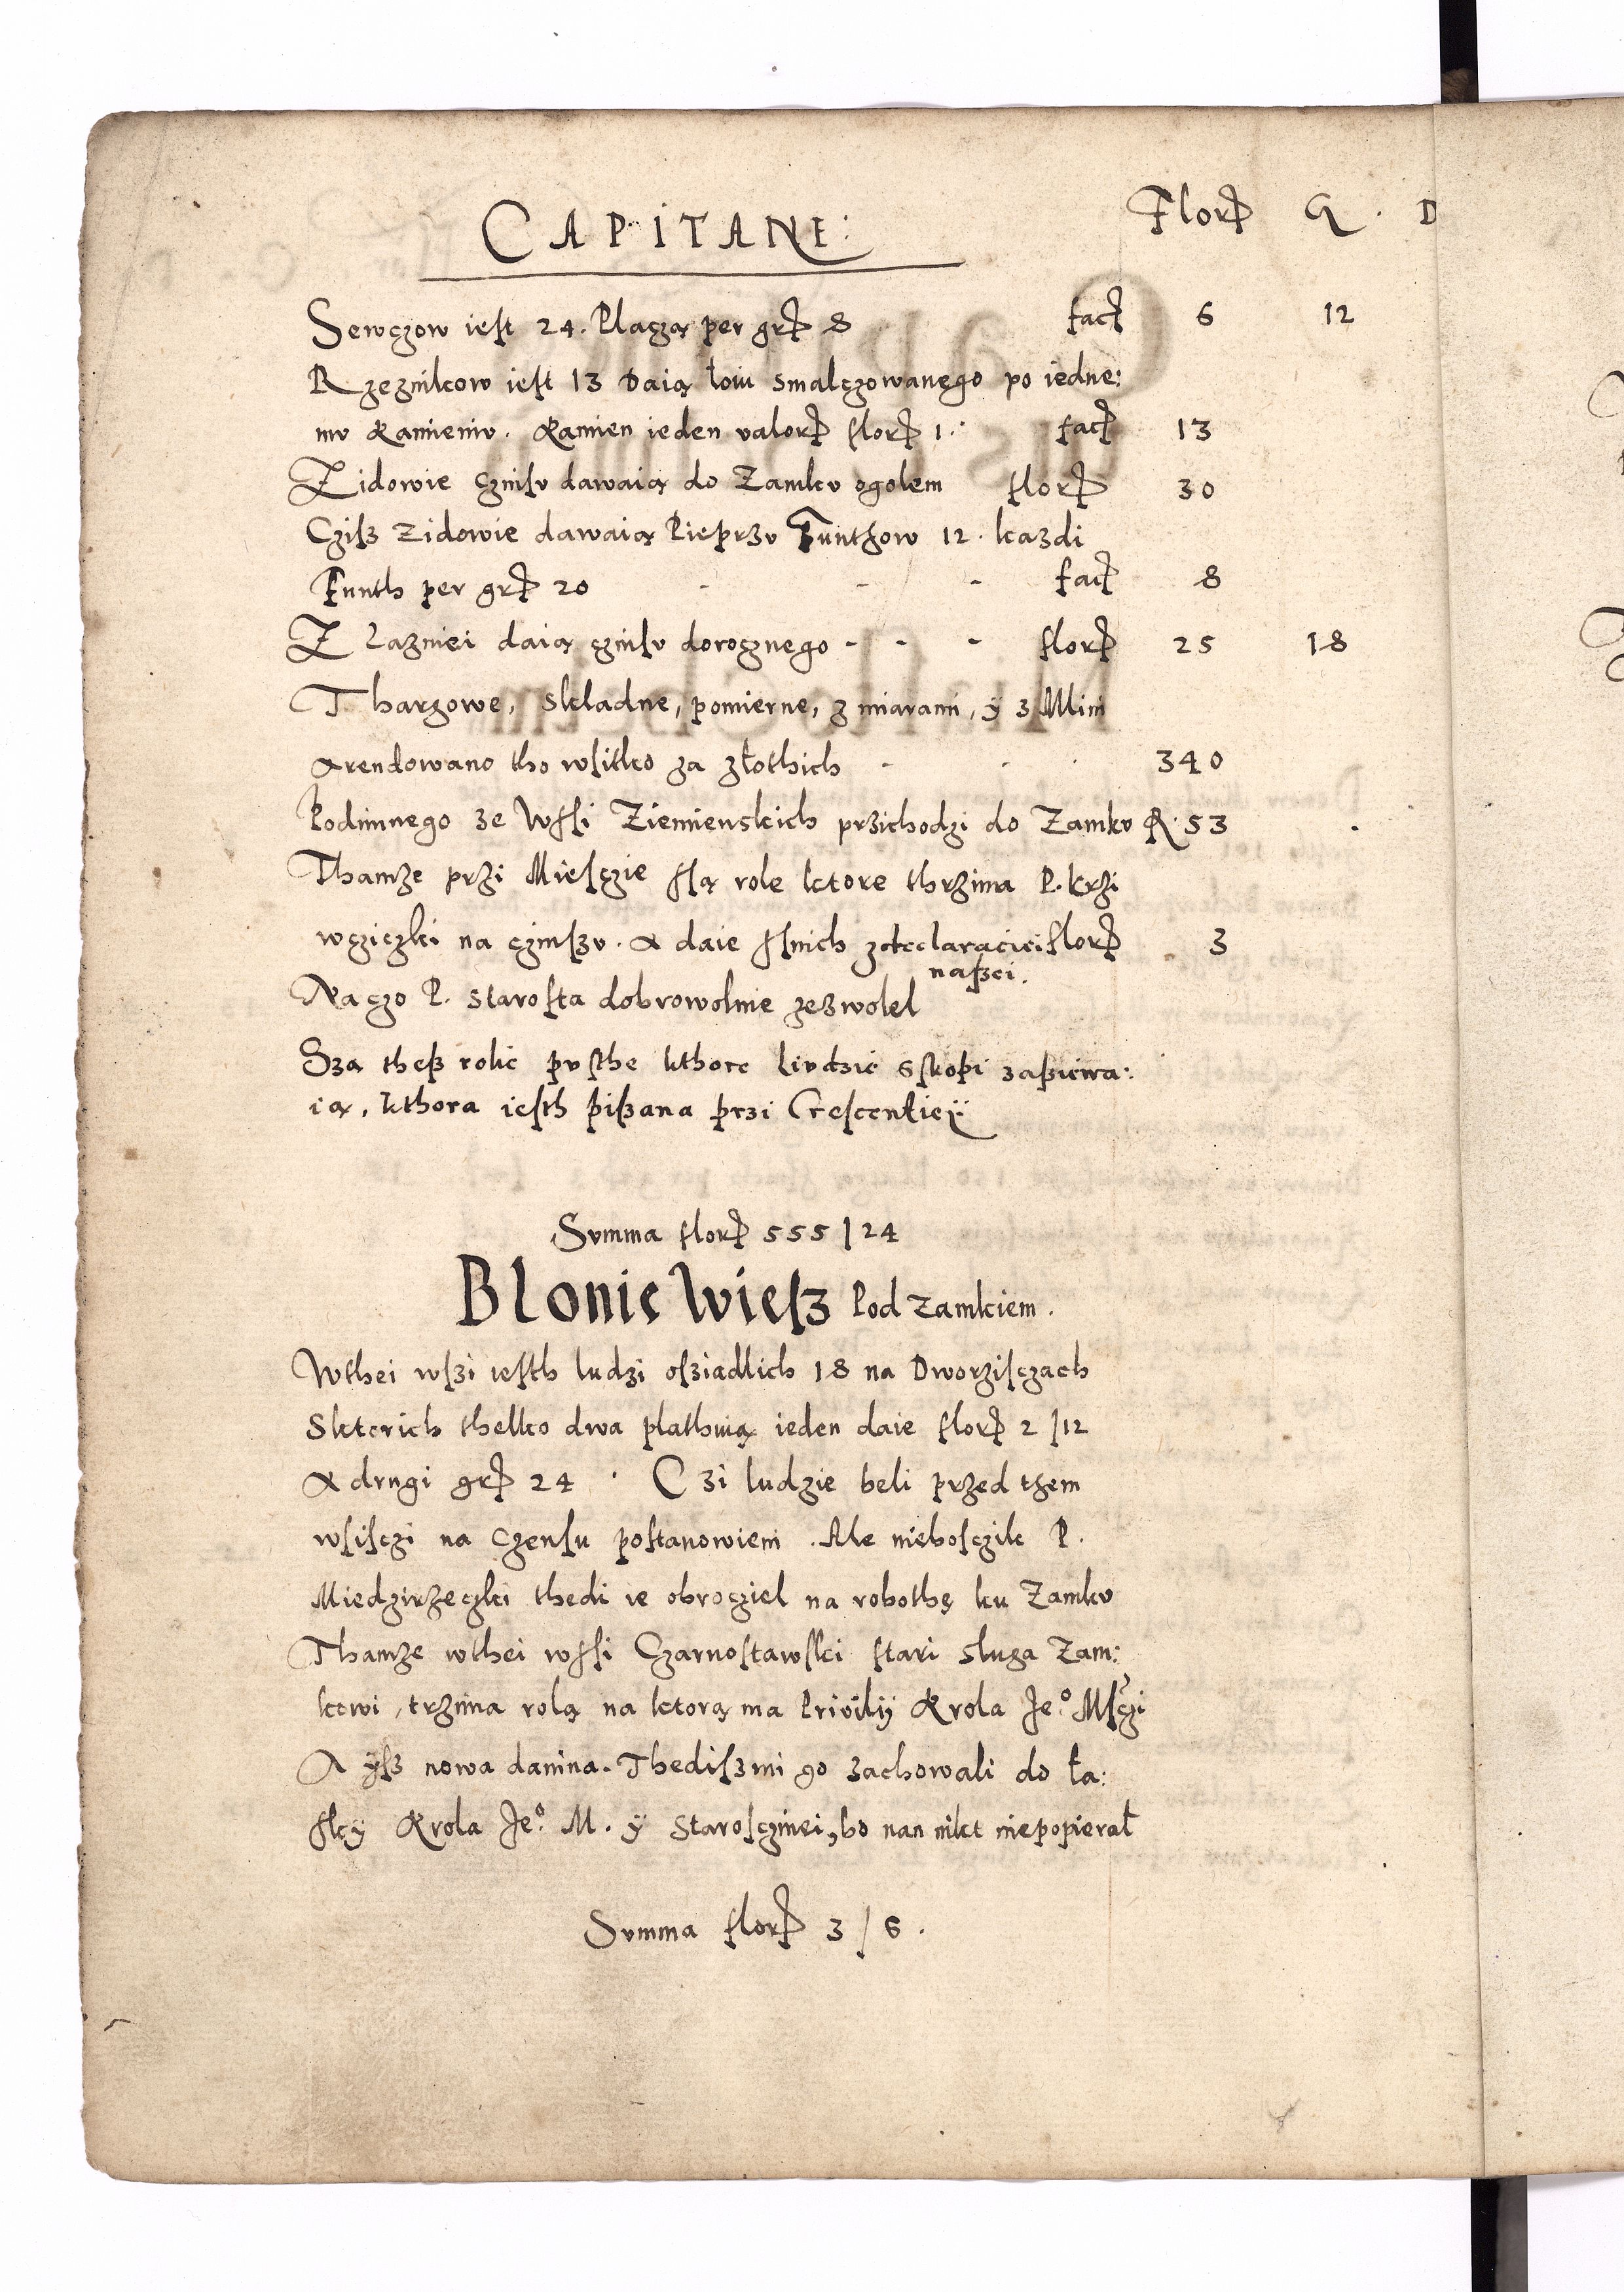 CAPITANE: Flor G. D
Sewczow iest 24. Placzą per gr 8 fac 6 12
Rzeznikow iest 13 Daią łoiu smalczowanego po iedne:
mv Kamieniv. Kamien ieden valor flor 1. fac 13
Zidowie Czinsv dawaią do Zamkv ogolem flor 30
Cziſz Zidowie dawaią Pieprzv Funthow 12. kazdi
Funth per gr 20 - - - fac 8
Z Lazniei daią czinsv dorocznego - - - flor 25 18
Thargowe, skladne, pomierne, z miarami, ÿ z Mini
Arendowano tho wsitko za złothich - 340
Podimnego ze Wſſi Ziemienskich przichodzi do Zamkv R 53
Thamze przi Mieſczie ſſą role ktore thrzima P. Krzi
wcziczki na czinſzv. A daie ſſnich zdeclaraciei flor 3
naſzei.
Na czo P. Staroſta dobrowolnie zezwolel
Sza theſz rolie pvſthe kthore livdzie sſkopi zaſziewa:
ią, kthora ieſth piſzana przi Creſcentieÿ
Svmma flor 555 | 24
Blonie Wieſz Pod zamkiem.
Wthei wſzi ieſth ludzi oſziadlich 18 na Dworziſczach
Skterich thelko dwa plathnią ieden daie flor 2 | 12
A drugi gr 24 . Czi ludzie beli przed them
wſiſczi na Czenſu poſtanowieni. Ale nieboſczik P.
Miedzirzeczki thedi ie obrocziel na robothę ku Zamkv
Thamze wthei wſſi Czarnoſtawſki ſtari sluga Zam:
kowi, trzima rolą na ktorą ma Privilÿ Krola Je:o Mſczi
A ÿſz nowa danina. Thediſzmi go zachowali do ła:
ſſkÿ Krola Je:o M. ÿ Staroſczinei, bo nan nikt niepopierał
Svmma flor 3 | 6.